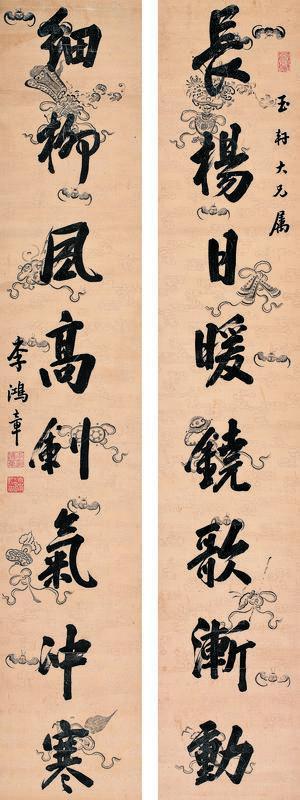 玉軒大兄属
長楊日暖鐃歌漸動
細柳風高劍氣沖寒
李鴻章